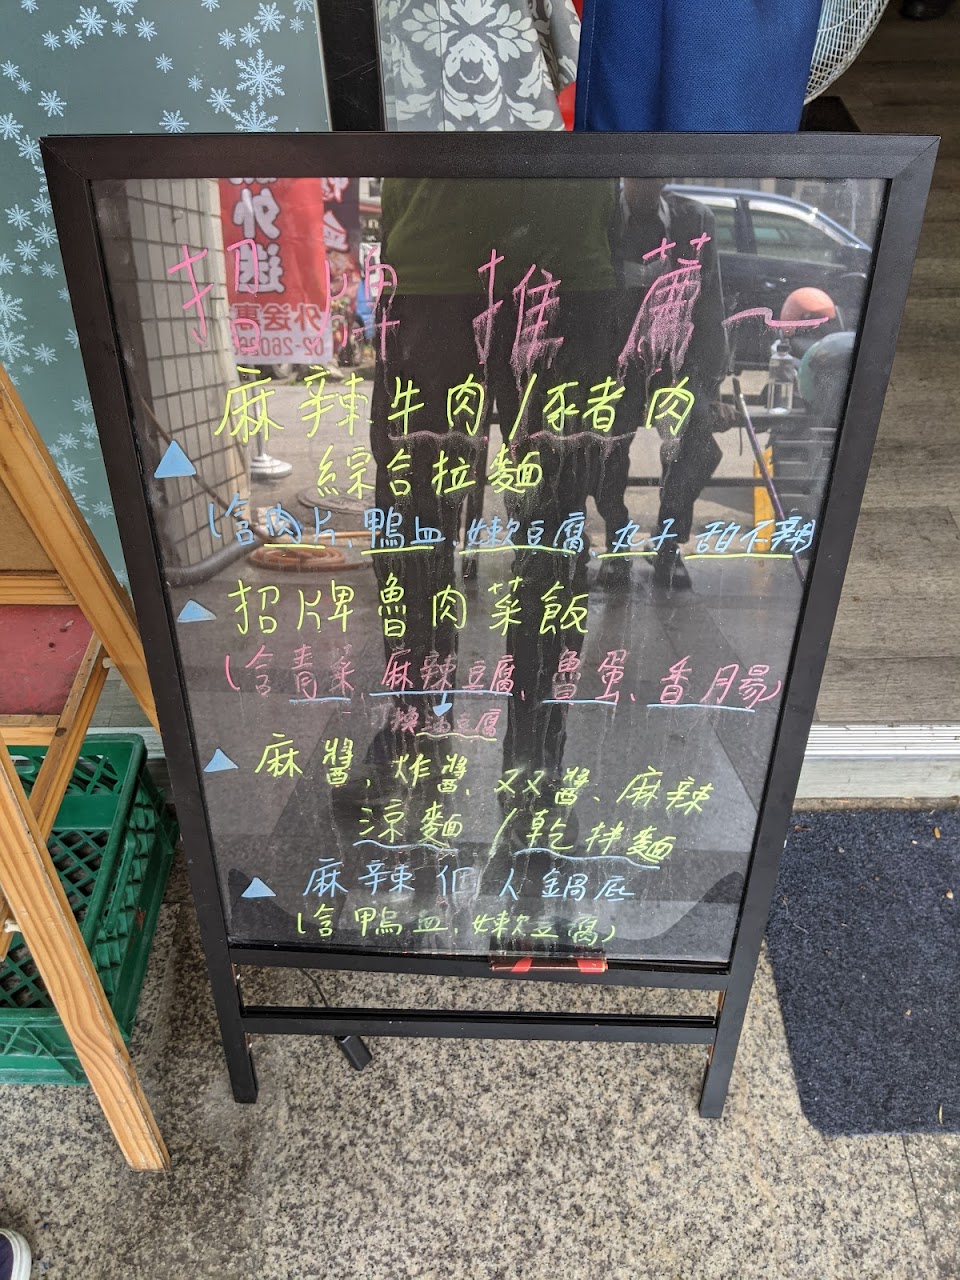 外送
外送專
02-2602
招牌推薦~
麻辣牛肉/豬肉
綜合拉麵
(含肉片、鴨血、嫩豆腐、丸子 甜不辣)
招牌魯肉菜飯
(含青菜、麻辣豆腐、魯蛋、香腸)
換油豆腐
麻醬、炸醬、双醬、麻辣
涼麵/乾拌麵
麻辣個人鍋底
(含鴨血、嫩豆腐)